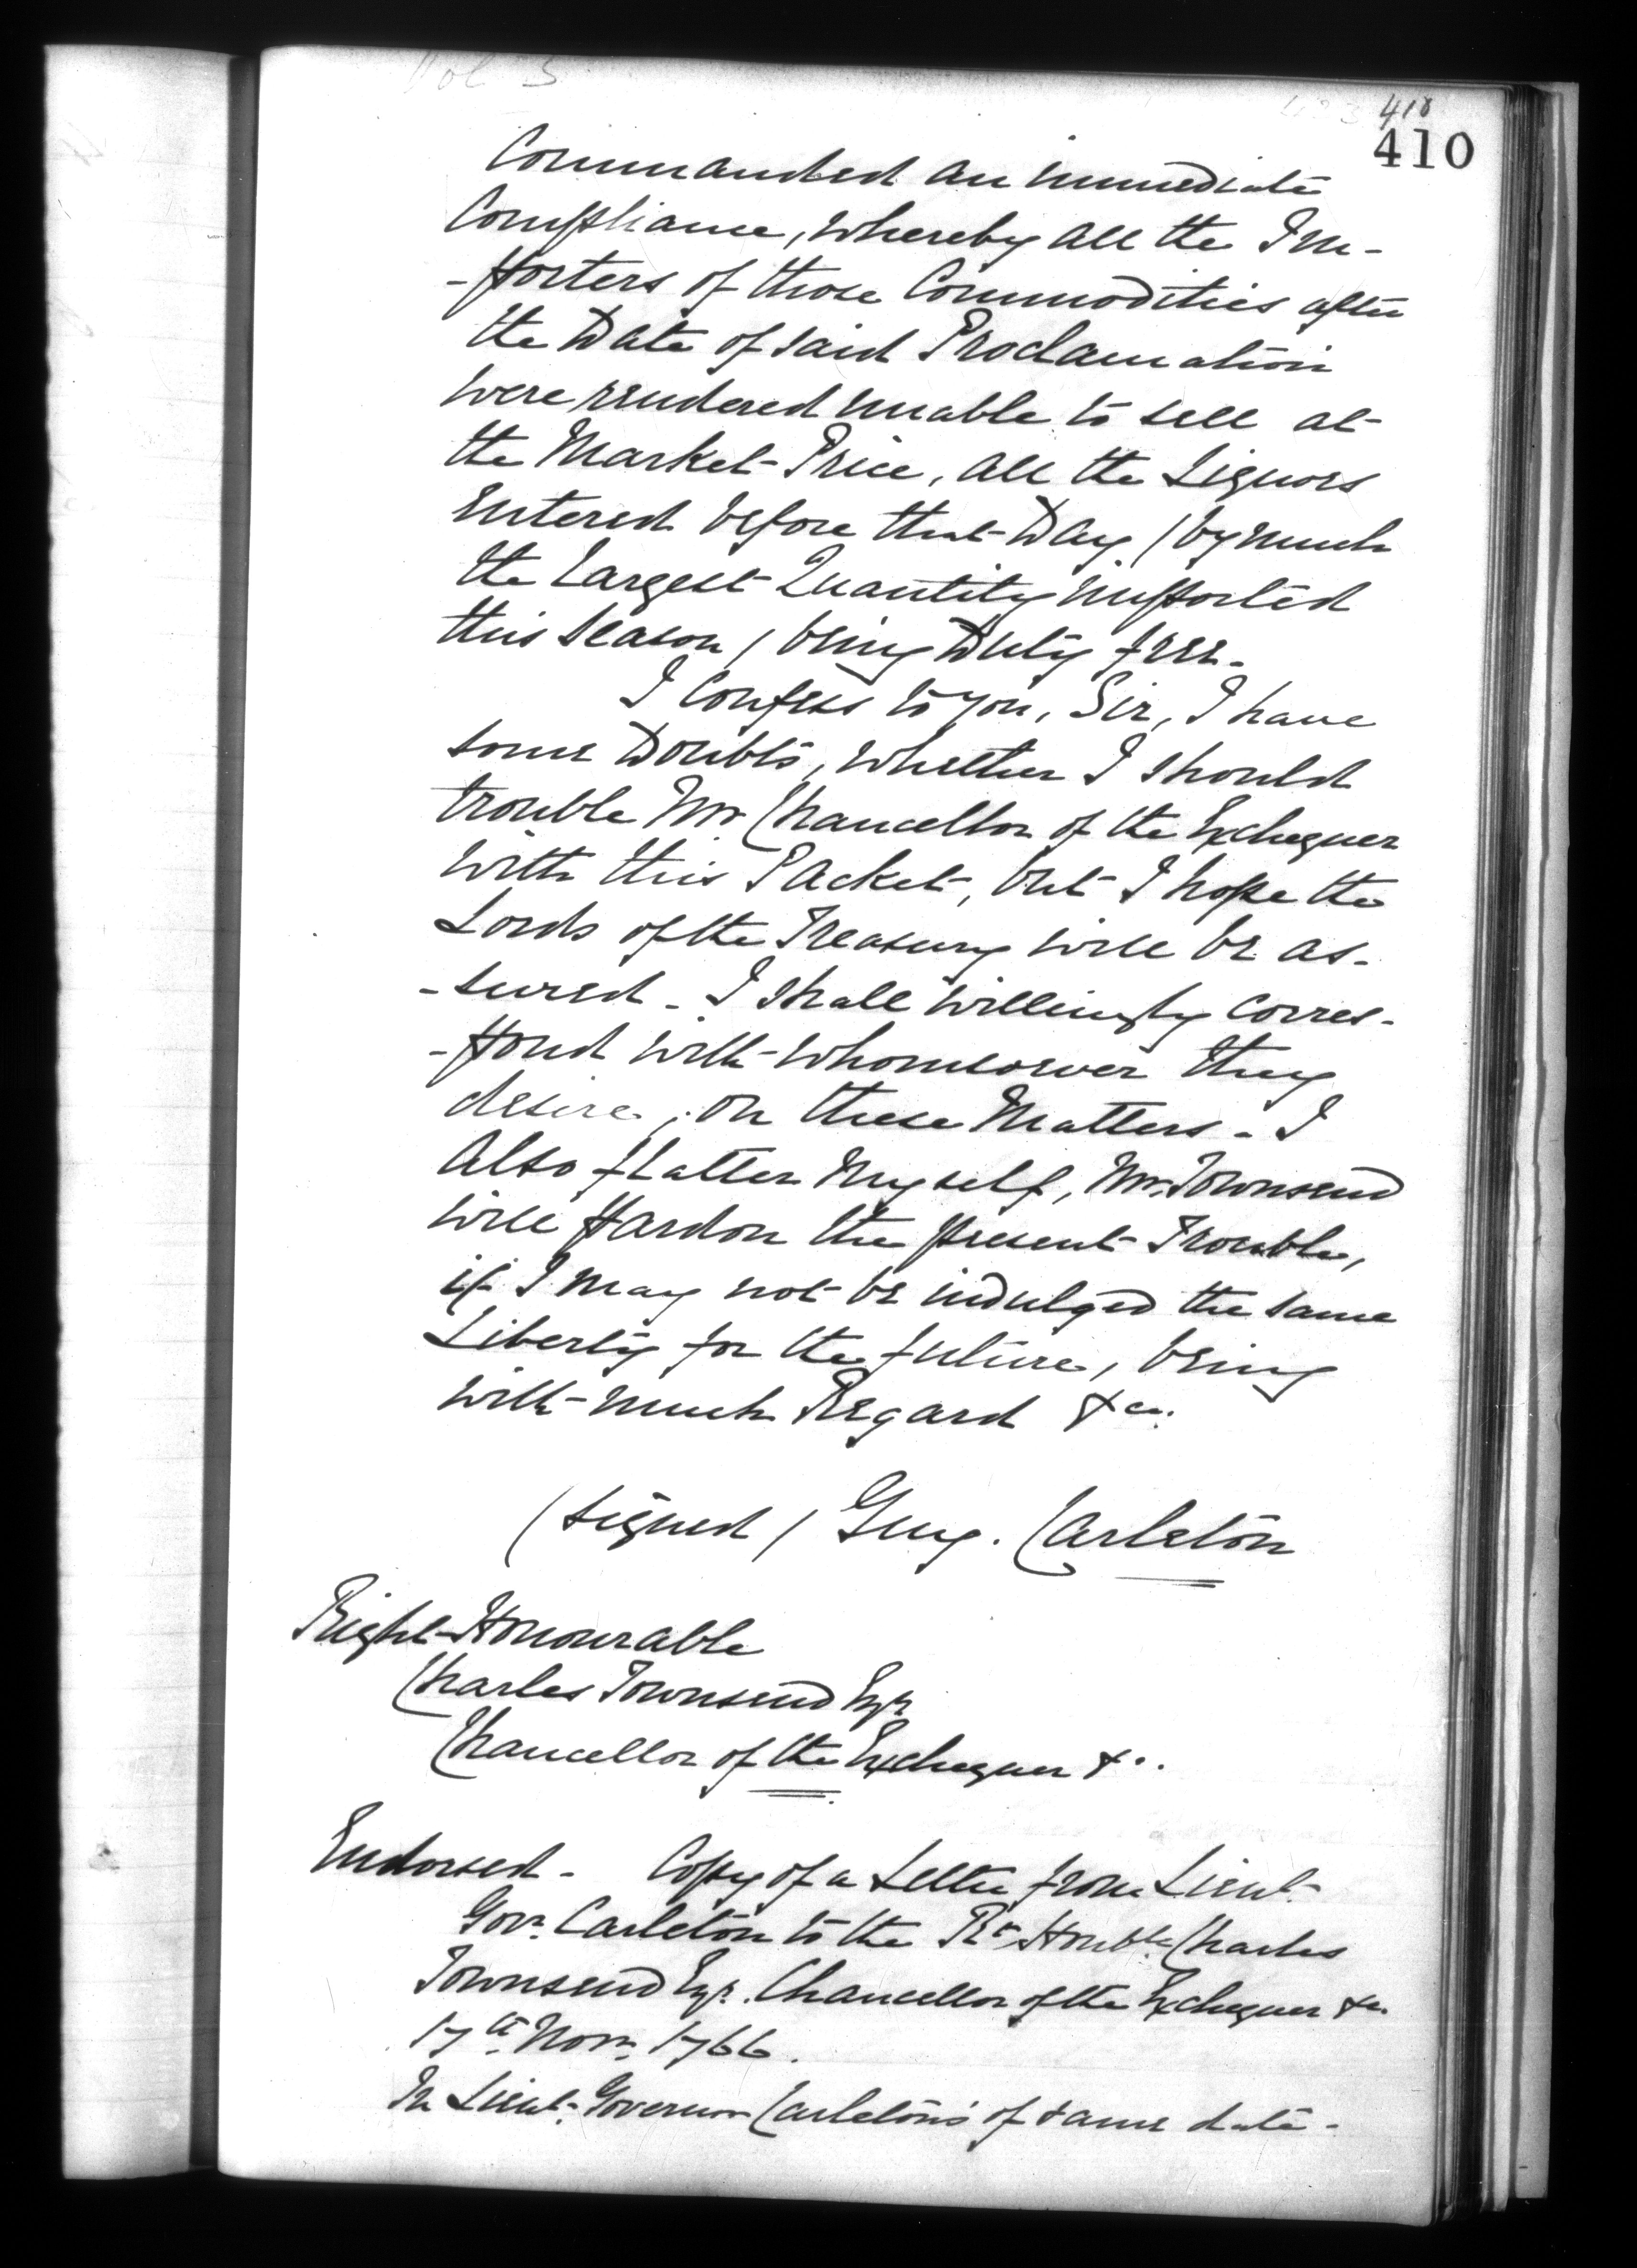 Vol 5
410
410
Commanded an immediate
Compliance, whereby all the Im-
-porters of those Commodities after
the Date of said Proclamation
were rendered unable to sell at
the Market Price, all the Liquors
Entered before that Day / by much
the Largest Quantity imported
this Season / being Duty free.
I confess to you, Sir, I have
some Doubts, whether I should
trouble Mr. Chancellor of the Exchequer
with this Packet, but I hope the
Lords of the Treasury will be as-
-sured - I shall willingly corres-
-pond with whomsoever they
desire, on these Matters - I
Also flatter Myself, Mr. Townsend
will pardon the present Trouble,
if I may not be indulged the same
Liberty for the future, being
with much Regard &ca.
(signed / Guy. Carleton
Right Honourable
Charles Townsend Esqr.
Chancellor of the Exchequer &c.
Endorsed - Copy of a Letter from Lieut.
Govr. Carleton to the Rt. Honble. Charles
Townsend Esqr. Chancellor of the Exchequer &ca.
17th. Novr. 1766.
In Lieut. Governor Carleton's of same date -